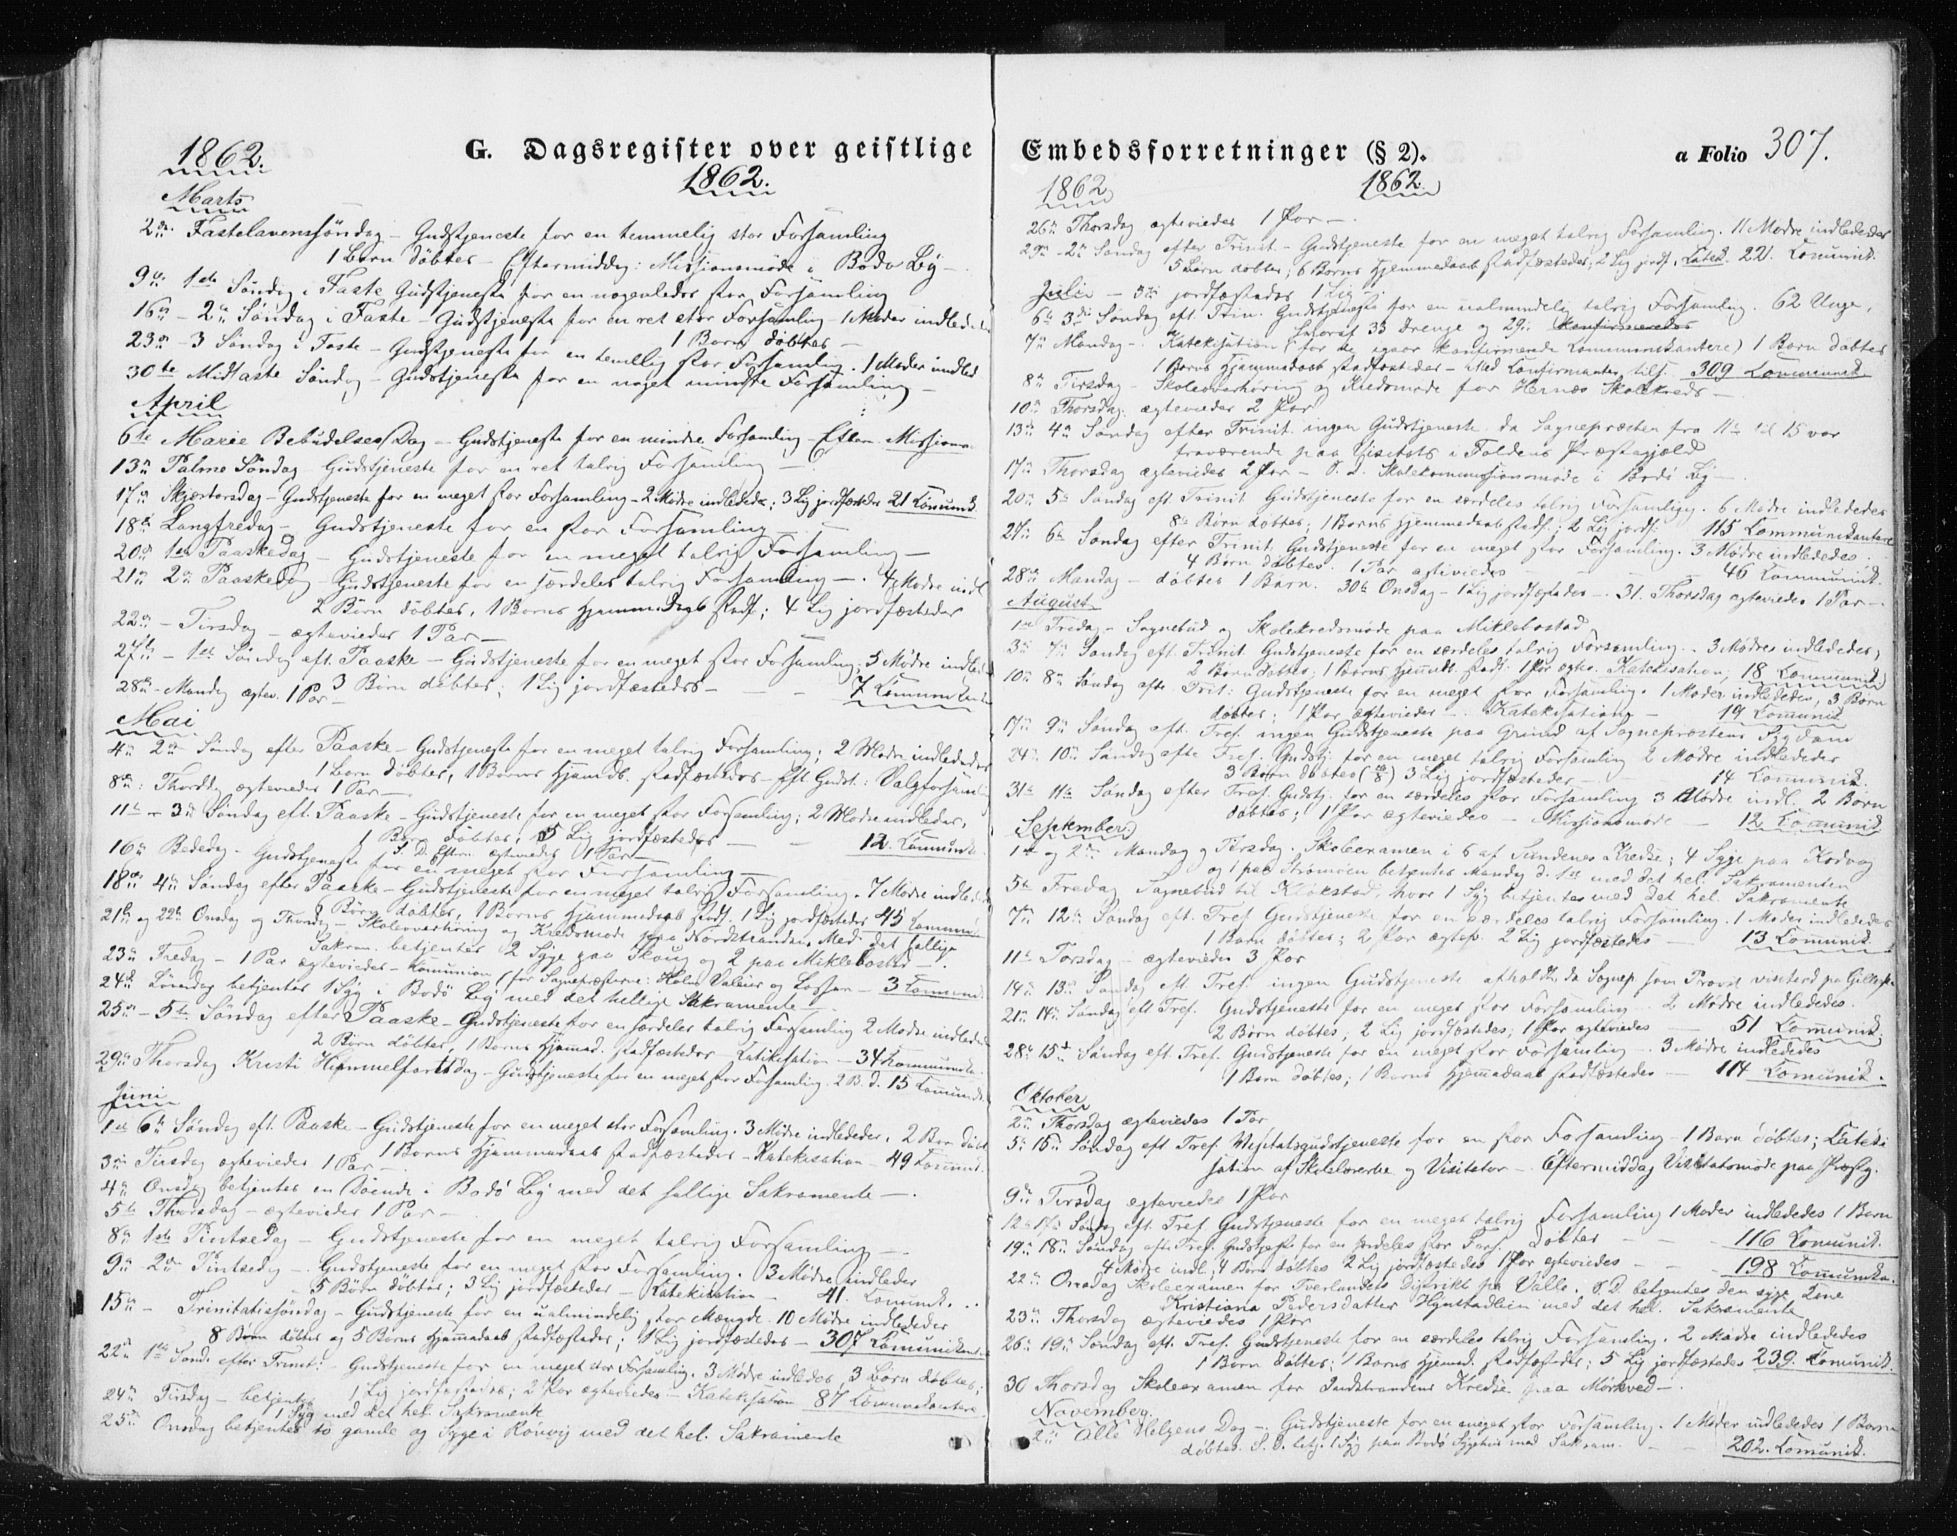 G. Dagsregister over geistlige Embedsforretninger (§ 2). a Folio 307.
1862. 1862.
Marts
2den Fastelavenssöndag - Gudstjeneste for en temmelig stor Forsamling
1 Barn döbtes - Eftermiddag: Missionsmöde i Bodö By -
9de 1ste Söndag i Faste Gudstjeneste for en nogenledes stor Forsamling
16de - 2den Söndag i Faste - Gudstjeneste for en ret stor Forsamling - 1 Moder indlededes
1 Barn döbtes -
23de - 3 Söndag i Faste - Gudstjeneste for en temlig stor Forsamling. 1 Moder indled
30te Midfaste Söndag - Gudstjeneste for en noget mindre Forsamling -
April
6te Marie Bebudelses Dag - Gudstjeneste for en mindre Forsamling - Efterm. Missions
13de Palme Söndag - Gudstjeneste for en ret talrig Forsamling -
17de Skjærtorsdag - Gudstjeneste for en meget stor Forsamling - 2 Mödre indledede; 3 Lig jordfæstedes 21 Komunik.
18de Langfredag - Gudstjeneste for en stor Forsamling -
20de 1ste Paaskedag - Gudstjeneste for en meget talrig Forsamling -
21de 2den Paaskedag - Gudstjeneste for en særdeles talrig Forsamling -. 4 Mödre indl
2 Börn döbtes, 1 Barns Hjemmedaab stadf; 4 Lig jordfæstedes
22de - Tirsdag - ægteviedes 1 Par -
27de - 1ste Söndag eft. Paaske - Gudstjeneste for en meget stor Forsamling; 5 Mödre indled
3 Börn döbtes; 1 Lig jordfæstedes - - - 7 Komunikan
28de - Mandag ægtev. 1 Par -
Mai
4de 2den Söndag efter Paaske - Gudstjeneste for en meget talrig Forsamling; 2 Mödre indlededes
1 Barn döbtes, 1 Barns Hjemdb. stadfæstedes - Eft Gudst: Valgforsamlin
8de: Thorsdag ægteviedes 1 Par -
11te - 3die Söndag eft. Paaske - Gudstjeneste for en meget stor Forsamling; 2 Mödre indledes,
1 Barn döbtes, 5 Lig jordfæstedes - - 12 Komunik
S. D. Eftm. ægteviedes 1 Par -
16de Bededag - Gudstjeneste for en meget stor Forsamling -
18de 4de Söndag efter Paaske - Gudstjeneste for en meget talrig Forsamling. 7 Mödre indled
Börn döbtes, 1 Barns Hjemmedaab stadf. 1 Lig jordfæstedes 45 Komunik
21de og 22de Onsdag og Thorsdag - Skoleoverhöring og Kredsmöde paa Nordstranden. Med det hellige
Sakram. betjentes 2 Syge paa Skaug og 2 paa Miklebostad -
23de Fredag - 1 Par ægteviedes - Komunion (for Sognepræsterne: Holm, Valeur og Lassen - 3 Komunik.
24de Löverdag betjentes 1 Syg i Bodö By med det hellige Sakramente -
25de - 5te Söndag efter Paaske - Gudstjeneste for en særdeles talrig Forsamling 2 Mödre indled
2 Börn döbtes, 1 Barns Hjemmed. stadfæstedes - Katekisation - 34 Kommunika
29de Thorsdag Kristi Himmelfartsdag - Gudstjeneste for en meget stor Forsamling. 2 B. d. 15 Komunik.
Juni
1ste 6te Söndag eft. Paaske - Gudstjeneste for en meget stor Forsamling. 3 Mödre indlededes. 2 Börn döbt
1 Barns Hjemmedaab stadfæstedes - Katekisation - 49 Komunik.
3die Tirsdag ægteviedes 1 Par -
4de Onsdag betjentes en Döende i Bodö By med det hellige Sakramente -.
5te Thorsdag - ægteviedes 1 Par -
8de 1ste Pintsedag - Gudstjeneste for en meget talrig Forsamling -
9de 2den Pintsedag - Gudstjeneste for en meget stor Forsamling. 3 Mödre indledes
5 Börn döbtes; 3 Lig jordfæstedes - Katekisation - 41. Komunik.
15de - Trinitatissöndag - Gudstjeneste for en ualmindelig stor Mængde. 10 Mödre indlededes
8 Börn döbtes og 5 Börns Hjemmedaab stadfæstedes; 1 Lig jordfæstedes - 307 Komunikan
22de 1ste Sönd. efter Trinit: - Gudstjeneste for en meget stor Forsamling. 3 Mödre indledes, 3 Börn döbtes;
1 Lig jordfæstedes; 2 Par ægteviedes - Katekisation 87 Komunikantere
24de Tirsdag - betjentes 1 Syg med det hel. Sakramente
25de Onsdag betjentes to gamle og Syge i Rönvig med det hel. Sakramente
1862 1862
26de Thorsdag ægteviedes 1 Par -.
29de - 2den Söndag efter Trinit - Gudstjeneste for en meget talrig Forsamling. 11 Mödre indlededes
5 Börn döbtes, 6 Börns Hjemmedaab stadfæstedes; 2 Lig jordf. Katek. 221. Komunik.
Julii - 3die jordfæstedes 1 Lig
6te 3die Söndag eft. Trin. Gudstjeneste for en ualmindelig talrig Forsamling. 62 Unge,
hvoraf 33 Drenge og 29. Konfirmeredes
7de Mandag - Katekisation (for de igaar konfirmerede Kommunikantere) 1 Barn döbtes
1 Barns Hjemmedaab stadfæstedes - Med Konfirmanter tils. 309 Kommunik.
8de Tirsdag - Skoleoverhöring og Kredsmöde for Hernæs Skolekreds -
10de Thorsdag. ægteviedes 2 Par
13de 4de Söndag efter Trinit. ingen Gudstjeneste. da Sognepræsten fra 11te til 15 var
fraværende paa Visitats i Foldens Præstegjæld
17de Thorsdag ægteviedes 2 Par - S. D. Skolekommissionsmöde i Bodö By -
20de 5te Söndag eft. Trinit. Gudstjeneste for en særdeles talrig Forsamling. 6 Mödre indlededes
8te Börn döbtes; 1 Barns Hjemmedaab stadf.; 2 Lig jordf: 115 Kommunikantere
27de 6te Söndag efter Trinit. Gudstjeneste for en meget stor Forsamling. 3 Mödre indlededes.
4 Börn döbtes. 1 Par ægteviedes - - - 46 Kommunik.
28de Mandag - döbtes 1 Barn. 30te Onsdag - 1 Lig jordfæstedes -. 31. Thorsdag ægteviedes 1 Par -.
August.
1ste Fredag - Sognebud og Skolekredsmöde paa Miklebostad
3die 7de Söndag eft. Trinit Gudstjeneste for en særdeles talrig Forsamling. 3 Mödre indlededes;
2 Börn döbtes; 1 Barns Hjemdb stadf. 1 Par ægtev. Katekisation, 18 Kommunik.
10de 8de Söndag eft. Trit: Gudstjeneste for en meget stor Forsamling. 1 Moder indlededes, 3 Börn
döbtes; 1 Par ægteviedes -. Katekisation - 19 Komunik
17de 9de Söndag eft. Tref. ingen Gudstjeneste paa Grund af Sognepræstens Sygdom
24de 10de Söndag eft. Tref. Gudstj. for en meget talrig Forsamling 2 Mödre indlededes
3 Börn döbtes 3 Lig jordfæstedes - - 14 Komunik.
31te 11te Söndag efter Tref. Gudstj. for en særdeles stor Forsamling 3 Mödre indl. 2 Börn
döbtes; 1 Par ægteviedes - Missionsmöde - 12 Komunik
September.
1ste og 2den Mandag og Tirsdag. Skoleexamen i 6 af Sundenes Kredse; 4 Syge paa Kodvog
og 1 paa Strömöen betjentes Mandag d. 1ste med det hel. Sakramenten
5te Fredag Sognebud til Klökstad, hvor 1 Syg betjentes med det hel. Sakramente
7de 12te Söndag eft. Tref Gudstjeneste for en særdeles talrig Forsamling. 1 Moder indlededes
1 Barn döbtes; 2 Par ægtev. 2 Lig jordfæstedes - 13 Komunik.
11te Torsdag - ægteviedes 3 Par
14de 13de Söndag eft Tref. ingen Gudstjeneste afholdtes, da Sognep. som Provst visiterd paa
21de 14de Söndag eft Tref. Gudstjeneste for en meget stor Forsamling. 2 Mödre indlededes.
2 Börn döbtes, 2 Lig jordfæstedes, 1 Par ægteviedes - 51 Komunik.
28de 15de Söndag eft. Tref. Gudstjeneste for en meget stor Forsamling -. 3 Mödre indlededes
1 Barn döbtes; 1 Barns Hjemmedaab stadfæstedes - 114 Komunik.
Oktober
2den Thorsdag ægteviedes 1 Par
5te 15de Söndag eft Tref. Visitatsgudstjeneste for en stor Forsamling - 1 Barn döbtes; Kateki
sation af Skolelærerne og Visitator -. Eftermiddag Visitatsmöde paa Præstg.
9de Tirsdag ægteviedes 1 Par
12te 17de Söndag eft. Tref Gudstjeneste for en meget talrig Forsamling 1 Moder indlededes 1 Barn
döbtes - - - 116 Komunik.
19de 18de Söndag eft. Tref. Gudstjeneste for en særdeles stor Fors.
4 Mödre indl; 4 Börn döbtes 2 Lig jordfæstedes 1 Par ægteviedes - - 198 Komunika.
22de Onsdag Skoleexamen for Tverlandets Distrikt paa Valle. S. D. betjentes den syge Lene
Kristiana Pedersdatter med det hel. Sakramente
23de Thorsdag ægteviedes 1 Par
26de 19de Söndag eft. Tref. Gudstjeneste for en særdeles talrig Forsamling. 2 Mödre indlededes
1 Barn döbtes; 1 Barns Hjemmed. stadfæstedes; 5 Lig jordfæstedes 239. Komunik.
30 Thorsdag Skoleexamen for Indstrandens Kredse paa Mörkved -.
November.
2den Alle Helgens Dag -. Gudstjeneste for en meget stor Forsamling. 1 Moder indlededes 1 Barn
döbtes. S. D. betj. 1 Syg paa Bodö Sygehus med Sakram. - - 202. Komunik.